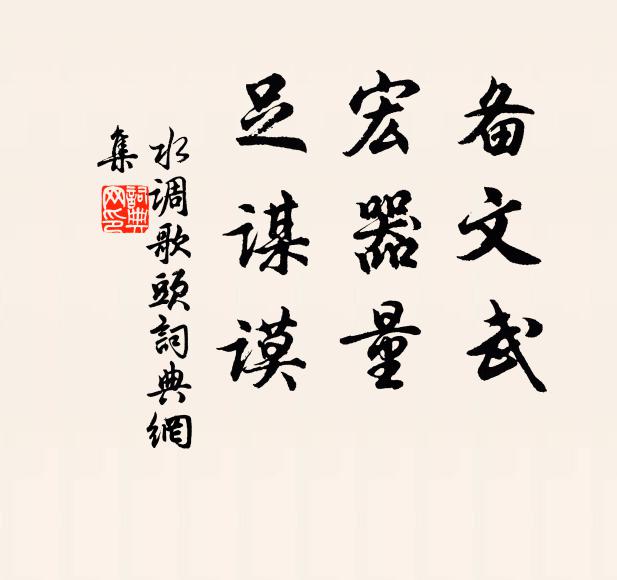 备文武
宏器量
足谋谟
水调歌頭詞典網
集
詞典
网印